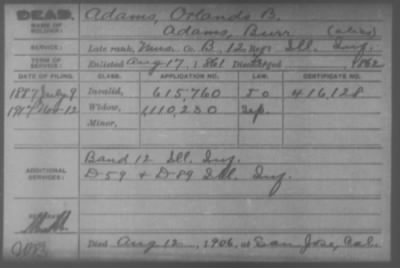 DEAD.
NAME OF SOLDIER:
Adams, Orlando B.
Adams, Burr (alias)
SERVICE: Late rank, Mus. Co. B, 12 Regt. Ill. Inf.
TERM OF SERVICE: Enlisted Aug 17, 1861 Discharged 1862
DATE OF FILING. CLASS. APPLICATION NO. LAW. CERTIFICATE NO.
1887 July 9 Invalid, 615,760 416,128
1917 Nov-12 Widow, 1,110,230 Sep.
Minor,
ADDITIONAL SERVICES:
Band 12 Ill. Inf.
D-59 + D-89 Ill. Inf.
REMARKS:
Died Aug 12, 1906, at San Jose, Cal.